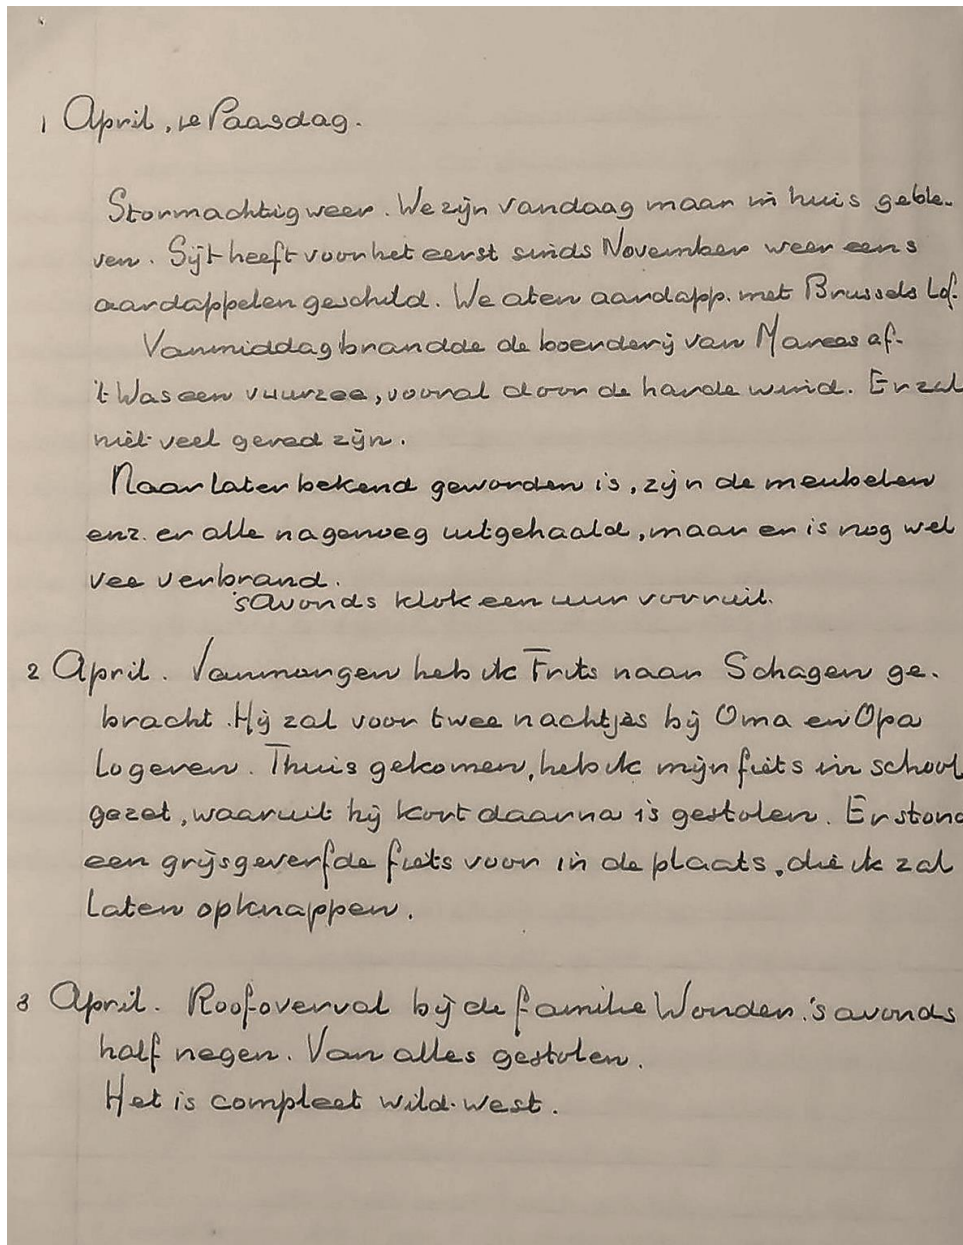 1 April, 1e Paasdag.
Stormachtig weer. We zijn vandaag maar in huis geble-
ven. Sijt heeft voor het eerst sinds November weer eens
aardappelen geschild. We aten aardapp. met Brussels Lof.
Vanmiddag brandde de boerderij van Marees af.
't Was een vuurzee, vooral door de harde wind. Er zal
niet veel gered zijn.
Naar later bekend geworden is, zijn de meubelen
enz. er alle nagenoeg uitgehaald, maar er is nog wel
vee verbrand.
's Avonds klok een uur vooruit.
2 April. Vanmorgen heb ik Frits naar Schagen ge-
bracht. Hij zal voor twee nachtjes bij Oma en Opa
logeren. Thuis gekomen, heb ik mijn fiets in school
gezet, waaruit hij kort daarna is gestolen. Er stond
een grijsgeverfde fiets voor in de plaats, die ik zal
laten opknappen.
3 April. Roof-overval bij de familie Wonder. 's avonds
half negen. Van alles gestolen.
Het is compleet wild-west.